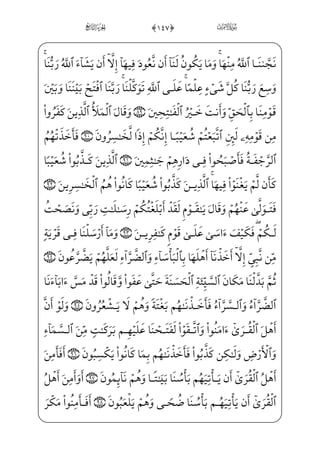 الجزء التاسع ﴿١٤٧﴾ سورة الأعراف
نَجَّىٰنَا ٱللَّهُ مِنْهَا ۚ وَمَا يَكُونُ لَنَآ أَن نَّعُودَ فِيهَآ إِلَّآ أَن يَشَآءَ ٱللَّهُ رَبُّنَا ۚ
وَسِعَ رَبُّنَا كُلَّ شَىْءٍ عِلْمًا ۚ عَلَى ٱللَّهِ تَوَكَّلْنَا ۚ رَبَّنَا ٱفْتَحْ بَيْنَنَا وَبَيْنَ
قَوْمِنَا بِٱلْحَقِّ وَأَنتَ خَيْرُ ٱلْفَـٰتِحِينَ ﴿٨٩﴾ وَقَالَ ٱلْمَلَأُ ٱلَّذِينَ كَفَرُوا۟
مِن قَوْمِهِۦ لَئِنِ ٱتَّبَعْتُمْ شُعَيْبًا إِنَّكُمْ إِذًا لَّخَـٰسِرُونَ ﴿٩٠﴾ فَأَخَذَتْهُمُ
ٱلرَّجْفَةُ فَأَصْبَحُوا۟ فِى دَارِهِمْ جَـٰثِمِينَ ﴿٩١﴾ ٱلَّذِينَ كَذَّبُوا۟ شُعَيْبًا
كَأَن لَّمْ يَغْنَوْا۟ فِيهَا ۚ ٱلَّذِينَ كَذَّبُوا۟ شُعَيْبًا كَانُوا۟ هُمُ ٱلْخَـٰسِرِينَ ﴿٩٢﴾
فَتَوَلَّىٰ عَنْهُمْ وَقَالَ يَـٰقَوْمِ لَقَدْ أَبْلَغْتُكُمْ رِسَـٰلَـٰتِ رَبِّى وَنَصَحْتُ
لَكُمْ ۖ فَكَيْفَ ءَاسَىٰ عَلَىٰ قَوْمٍ كَـٰفِرِينَ ﴿٩٣﴾ وَمَآ أَرْسَلْنَا فِى قَرْيَةٍ
مِّن نَّبِىٍّ إِلَّآ أَخَذْنَآ أَهْلَهَا بِٱلْبَأْسَآءِ وَٱلضَّرَّآءِ لَعَلَّهُمْ يَضَّرَّعُونَ ﴿٩٤﴾
ثُمَّ بَدَّلْنَا مَكَانَ ٱلسَّيِّئَةِ ٱلْحَسَنَةَ حَتَّىٰ عَفَوا۟ وَّقَالُوا۟ قَدْ مَسَّ ءَابَآءَنَا
ٱلضَّرَّآءُ وَٱلسَّرَّآءُ فَأَخَذْنَـٰهُم بَغْتَةً وَهُمْ لَا يَشْعُرُونَ ﴿٩٥﴾ وَلَوْ أَنَّ
أَهْلَ ٱلْقُرَىٰٓ ءَامَنُوا۟ وَٱتَّقَوْا۟ لَفَتَحْنَا عَلَيْهِم بَرَكَـٰتٍ مِّنَ ٱلسَّمَآءِ
وَٱلْأَرْضِ وَلَـٰكِن كَذَّبُوا۟ فَأَخَذْنَـٰهُم بِمَا كَانُوا۟ يَكْسِبُونَ ﴿٩٦﴾ أَفَأَمِنَ
أَهْلُ ٱلْقُرَىٰٓ أَن يَأْتِيَهُم بَأْسُنَا بَيَـٰتًا وَهُمْ نَآئِمُونَ ﴿٩٧﴾ أَوَأَمِنَ أَهْلُ
ٱلْقُرَىٰٓ أَن يَأْتِيَهُم بَأْسُنَا ضُحًى وَهُمْ يَلْعَبُونَ ﴿٩٨﴾ أَفَأَمِنُوا۟ مَكْرَ